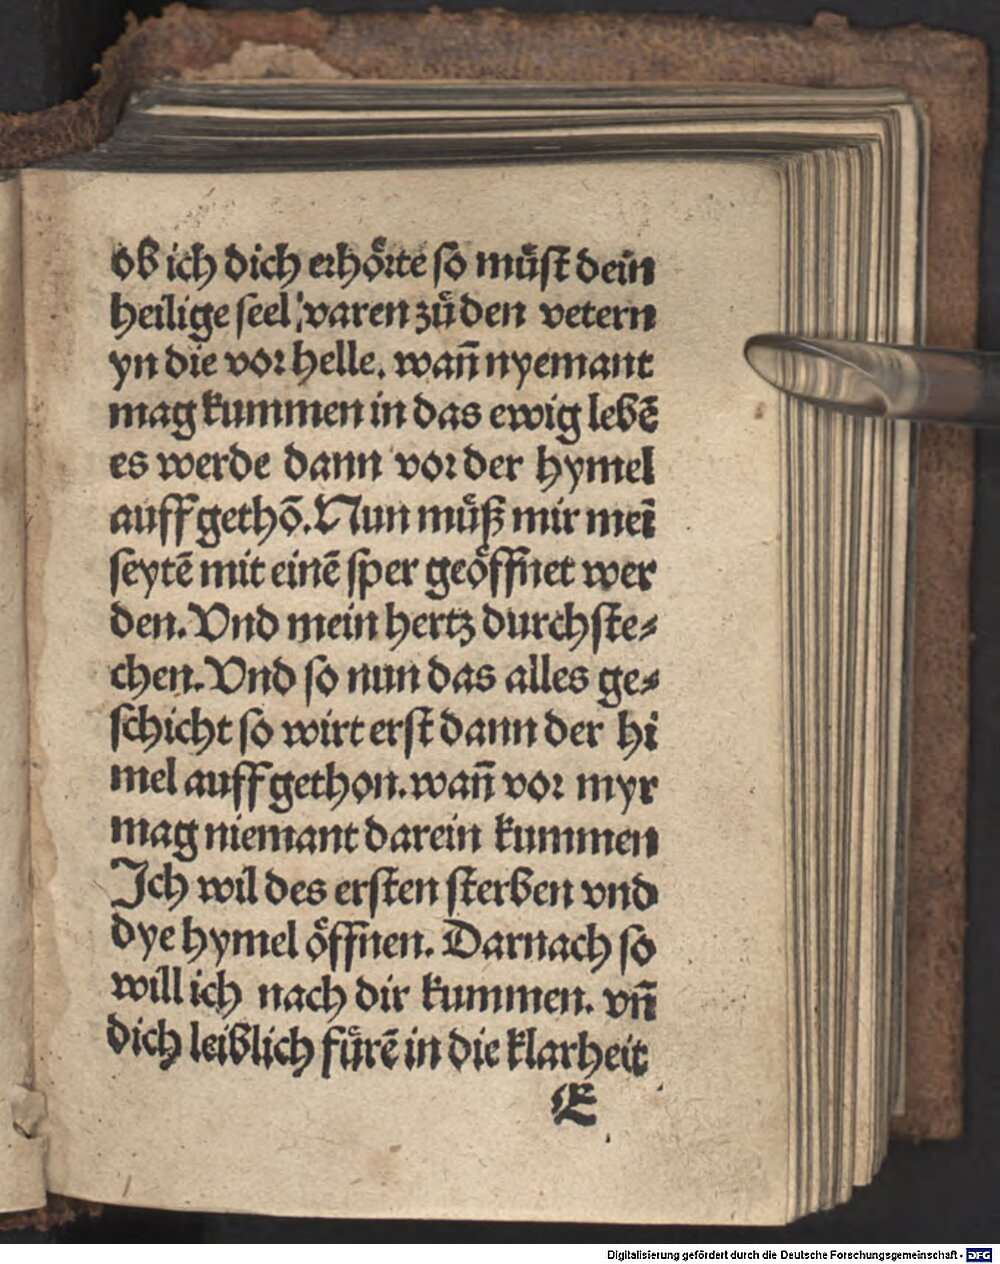 ob ich dich erhoͤrte so muͤst dein
heilige seel / varen zuͦ den vetern
yn die vor helle. wañ nyemant
mag kummen in das ewig lebē
es werde dann vor der hymel
auff gethō. Nun muͤß mir meī
seytē mit einē sper geoͤffnet wer
den. Vnd mein hertz durchste⸗
chen. Vnd so nun das alles ge⸗
schicht so wirt erst dann der hi
mel auff gethon. wañ vor myr
mag niemant darein kummen
Jch wil des ersten sterben vnd
dye hymel oͤffnen. Darnach so
will ich nach dir kummen. vñ
dich leiblich fuͤrē in die klarheit
E
Digitalisierung gefördert durch die Deutsche Forschungsgemeinschaft - DFG